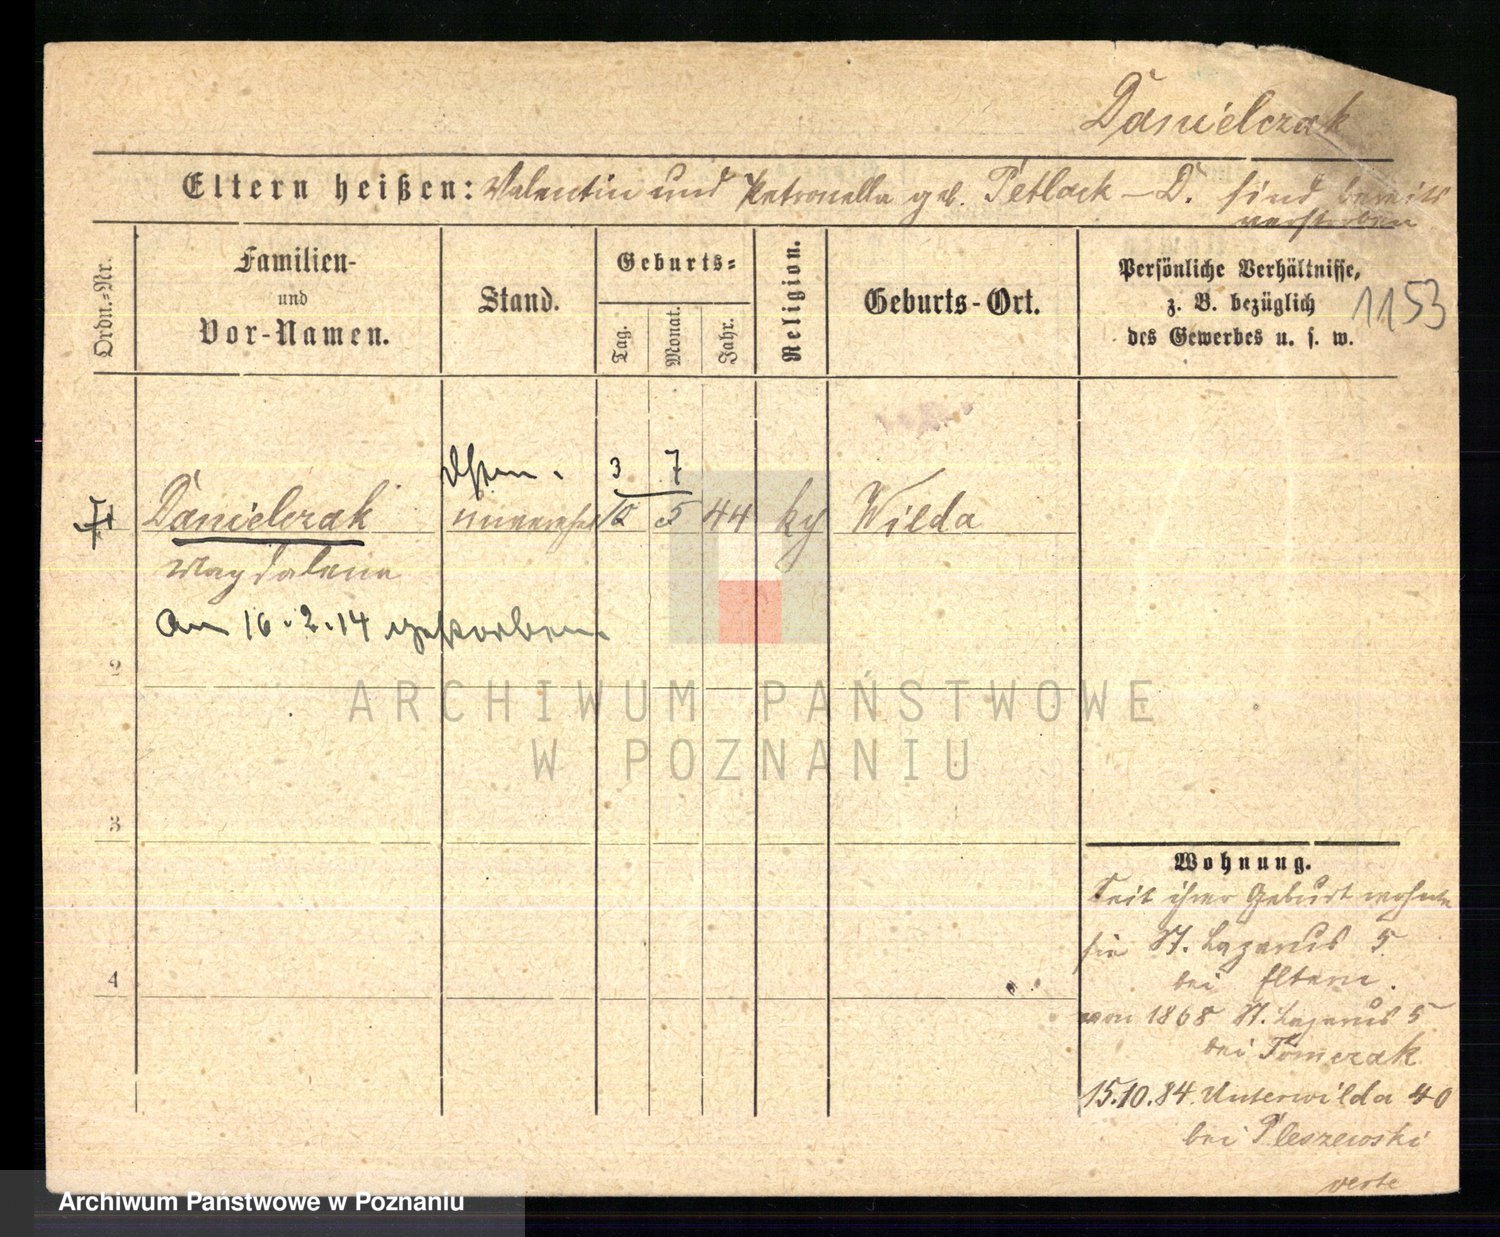 Danielczak
Eltern heißen: Valentin und Petronella geb. Petlack – D. sind bereits
verstorben
Ordn.-Nr.
Familien-
und
Vor-Namen.
Stand.
Geburts-
Tag.
Monat.
Jahr.
Religion.
Geburts-Ort.
Persönliche Verhältnisse,
z. B. bezüglich
des Gewerbes u. s. w.
1153
3 7
1 Danielczak 5 44 kg Wilda
Magdalena
am 16.2.14 gestorben.
2
3
4
Wohnung.
Seit ihrer Geburt wohnte
sie St. Lazarus 5
bei Eltern.
von 1868 St. Lazarus 5
bei Tomczak
15.10.84. Unterwilda 40
bei Pleszewski
verte
ARCHIWUM PAŃSTWOWE
W POZNANIU
Archiwum Państwowe w Poznaniu